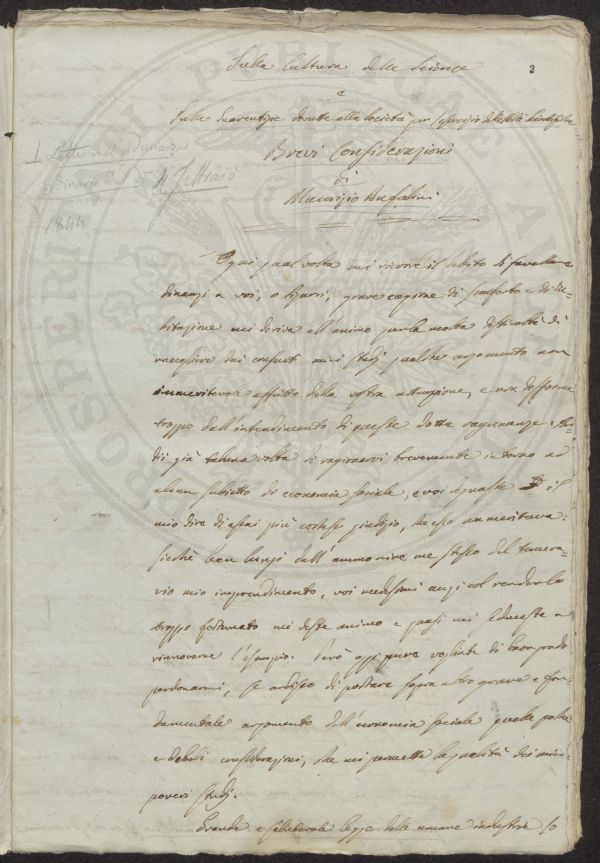 Sulla Cultura delle Scienze
e
Sulle Guarentigie dovute alla Società per l'esercizio delle Arti Scientifiche
Brevi Considerazioni
di
Maurizio Bufalini
3
1 Letta nell'Adunanza
del dì 4 Febbraio
1844
Ogni qual volta mi ricorre il debito di favellare
dinanzi a voi, o Signori, grave cagione di sconforto e di du-
bitazione mi deriva all'animo per la molta difficoltà di
raccogliere dai consueti miei studj qualche argomento non
immeritevole affatto della vostra attenzione, e non difforme
troppo dall'intendimento di queste dotte ragunanze. Ar-
dii già taluna volta di ragionarvi brevemente intorno ad
alcun subietto di economia sociale, e voi degnaste il
mio dire di assai più cortese giudizio, che esso non meritava:
sicchè ben lungi dall'ammonire me stesso del temera-
rio mio imprendimento, voi medesimi anzi col renderlo
troppo fortunato mi deste animo e quasi mi seduceste a
rinnovarne l'esempio. Però oggi pure vogliate di buon grado
perdonarmi, se ardisco di portare sopra altro grave e fon-
damentale argomento dell'economia sociale quelle poche
e deboli considerazioni, che mi permette la qualità dei miei
poveri studj.
Grande e salutevole legge delle umane industrie so
PROSPERITATI PUBLICAE AUGENDAE